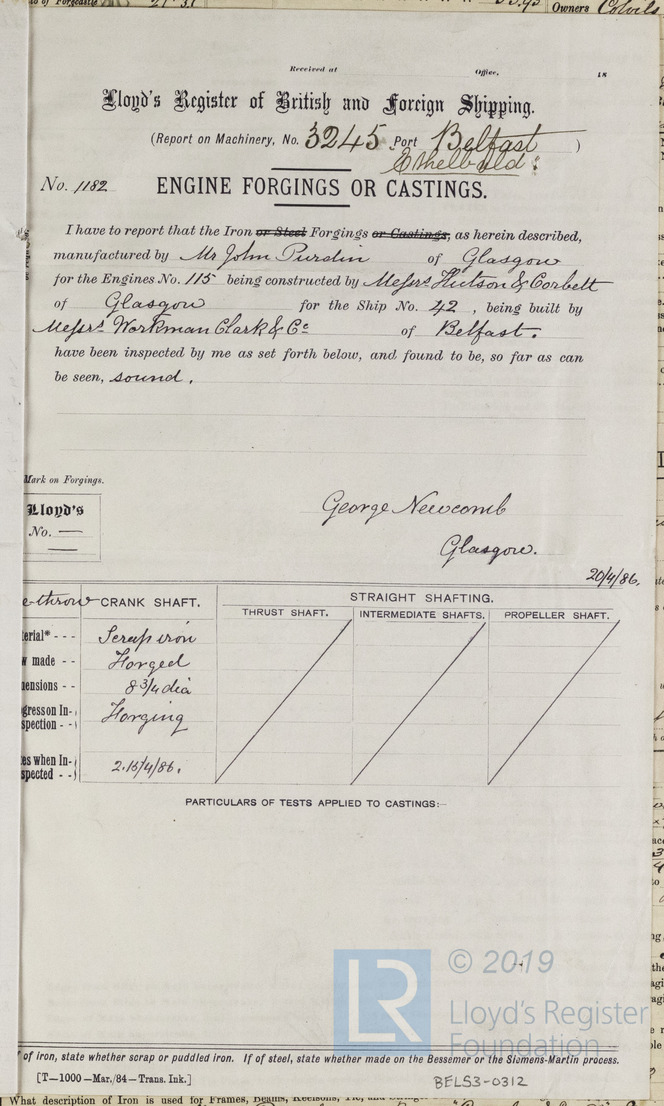 Owners Colvils
Received at Office, 18
Lloyd's Register of British and Foreign Shipping.
(Report on Machinery, No. 3245 Port Belfast )
Ethelbald:
No. 1182 ENGINE FORGINGS OR CASTINGS.
I have to report that the Iron or Steel Forgings or Castings, as herein described,
manufactured by Mr John Purdin of Glasgow
for the Engines No. 115 being constructed by Messrs Hutson & Corbett
of Glasgow for the Ship No. 42, being built by
Messrs Workman Clark & Co of Belfast.
have been inspected by me as set forth below, and found to be, so far as can
be seen, sound.
Mark on Forgings.
Lloyd's
No. —
George Newcomb
Glasgow.
20/4/86.
e-throw CRANK SHAFT. STRAIGHT SHAFTING.
THRUST SHAFT. INTERMEDIATE SHAFTS. PROPELLER SHAFT.
terial* - - - Scrap iron
w made - - Forged
mensions - - 8 3/4 dia
ogress on In-
spection - - Forging
es when In-
spected - - 2.15/4/86.
PARTICULARS OF TESTS APPLIED TO CASTINGS:—
© 2019
LR Lloyd's Register
Foundation
of iron, state whether scrap or puddled iron. If of steel, state whether made on the Bessemer or the Siemens-Martin process.
[T—1000—Mar./84—Trans. Ink.]
BELS3-0312
What description of Iron is used for Frames, Beams, Keelsons,